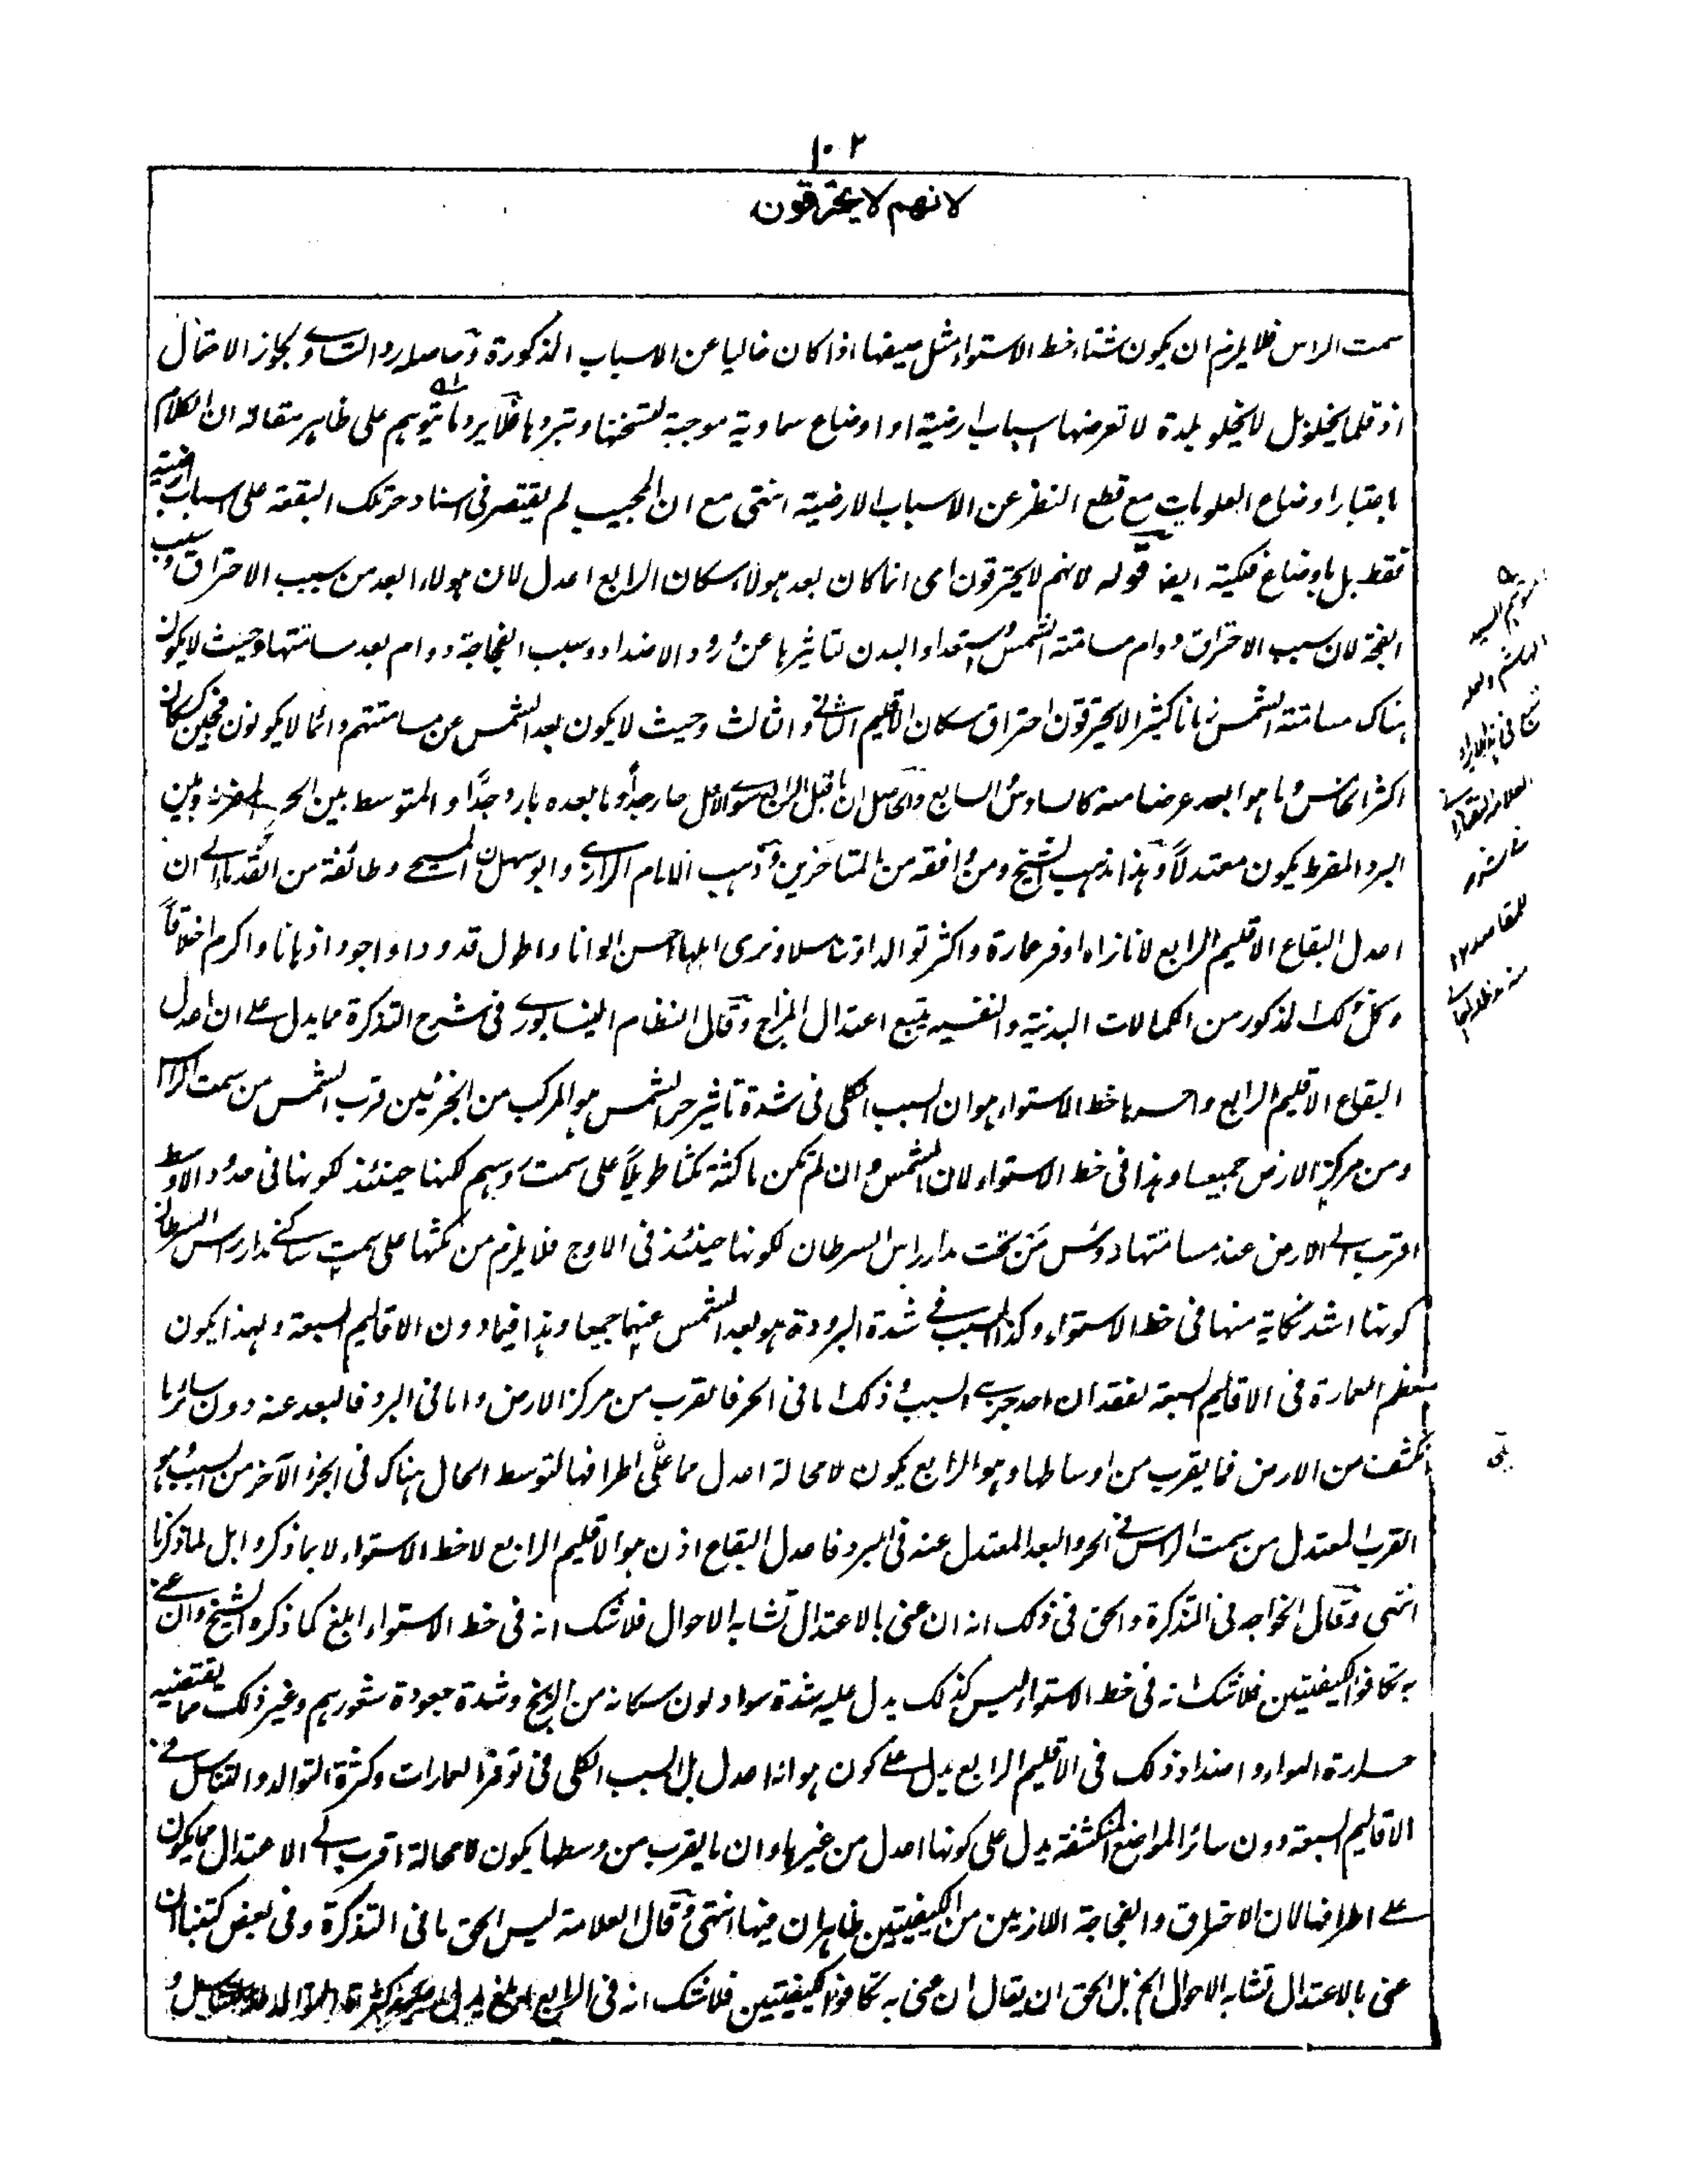 ١٠٢
لانهم لا يحترقون
سمت الراس فلا يلزم ان يكون شتاء خط الاستواء مثل صيفها اذا كان خاليا عن الاسباب المذكورة وحاصله ردالتساوي بجواز الاحتمال
اذ قلما يخلو بل لا يخلو بلدة لا تعرضها اسباب ارضية او اوضاع سماوية موجبة لتسخنها وتبردها فلا يرد ما يتوهم على ظاهر مقاله ان الكلام
باعتبار اوضاع العلويات مع قطع النظر عن الاسباب الارضية انتهى مع ان المجيب لم يقتصر فى اسناد حر تلك البقعة على اسباب ارضية
فقط بل باوضاع فلكية ايضا قوله لانهم لا يحترقون اى انما كان بعد هولاء سكان الرابع اعدل لان هولاء ابعد من سبب الاحتراق وسبب
الفجة لان سبب الاحتراق دوام مسامتة الشمس واستعداد البدن لتاثيرها عن ورود الاضداد وسبب الفجاجة دوام بعد مسامتتها وحيث لا يكون
هناك مسامتة الشمس زمانا كثيرا لا يحترقون احتراق سكان الاقليم الثانى والثالث وحيث لا يكون بعد الشمس عن مسامتتهم دائما لا يكونون فجين كسكان
اكثر الخامس وما هو ابعد عرضا منه كالسادس والسابع والحاصل ان ما قبل الرابع سوى الاول حار جدا وما بعده بارد جدًّا والمتوسط بين الحر المفرط وبين
البرد المفرط يكون معتدلاً وهذا مذهب الشيخ ومن وافقه من المتاخرين وذهب الامام الرازى وابو سهل المسيحى وطائفة من القدماء الى ان
اعدل البقاع الاقليم الرابع لانا نراه اوفر عمارة واكثر توالدا وتناسلا ونرى اهلها احسن الوانا واطول قدودا واجود اذهانا واكرم اخلاقاً
وكل ذلك المذكور من الكمالات البدنية والنفسيه يتبع اعتدال المزاج وقال النظام النيسابورى فى شرح التذكرة مما يدل على ان اعدل
البقاع الاقليم الرابع واحرها خط الاستواء هو ان السبب الكلى فى شدة تاثير حر الشمس هو المركب من الجزئين قرب الشمس من سمت الراس
ومن مركز الارض جميعا وهذا فى خط الاستواء لان الشمس وان لم تكن ماكثة مكثا طويلاً على سمت روسهم لكنها حينئذ لكونها فى حدود الاوسط
اقرب الى الارض عند مسامتتها روس من تحت مدار راس السرطان لكونها حينئذ فى الاوج فلا يلزم من مكثها على سمت ساكنى مدار راس السرطان
كونها اشد نكاية منها فى خط الاستواء وكذا السبب فى شدة البرودة هو بعد الشمس عنهما جميعا وهذا فيما دون الاقاليم السبعة ولهذا يكون
معظم العمارة فى الاقاليم السبعة لفقدان احد جزئى السبب وذلك اما فى الحر فالقرب من مركز الارض واما فى البرد فالبعد عنه دون سائر ما
انكشف من الارض فما يقرب من اوساطها وهو الرابع يكون لا محالة اعدل مما على اطرافها لتوسط الحال هناك فى الجزء الآخر من السبب وهو
القرب المعتدل من سمت الراس فى الحر والبعد المعتدل عنه فى البرد فاعدل البقاع اذن هو الاقليم الرابع لا خط الاستواء لا بما ذكروا بل لما ذكرنا
انتهى وقال الخواجه فى التذكرة والحق فى ذلك انه ان عنى بالاعتدال تشابه الاحوال فلا شك انه فى خط الاستواء ابلغ كما ذكره الشيخ وان عنى
به تكافوا الكيفيتين فلا شك انه فى خط الاستواء ليس كذلك يدل عليه شدة سواد لون سكانه من الزنج وشدة جعودة شعورهم وغير ذلك مما يقتضيه
حرارة الهواء واضداد ذلك فى الاقليم الرابع يدل على كون هوائه اعدل بل السبب الكلى فى توفر العمارات وكثرة التوالد والتناسل فى
الاقاليم السبعة دون سائر المواضع المنكشفة يدل على كونها اعدل من غيرها وان ما يقرب من وسطها يكون لا محالة اقرب الى الاعتدال مما يكون
على اطرافها لان الاحتراق والفجاجة اللازمين من الكيفيتين ظاهران فيها انتهى وقال العلامة ليس الحق ما فى التذكرة وفى بعض كتبنا ان
عنى بالاعتدال تشابه الاحوال الخ بل الحق ان يقال ان عنى به تكافوا الكيفيتين فلا شك انه فى الرابع ابلغ
المتوهم السيد
العلامة التفتازانى
شرح
للمقاصد ١٢